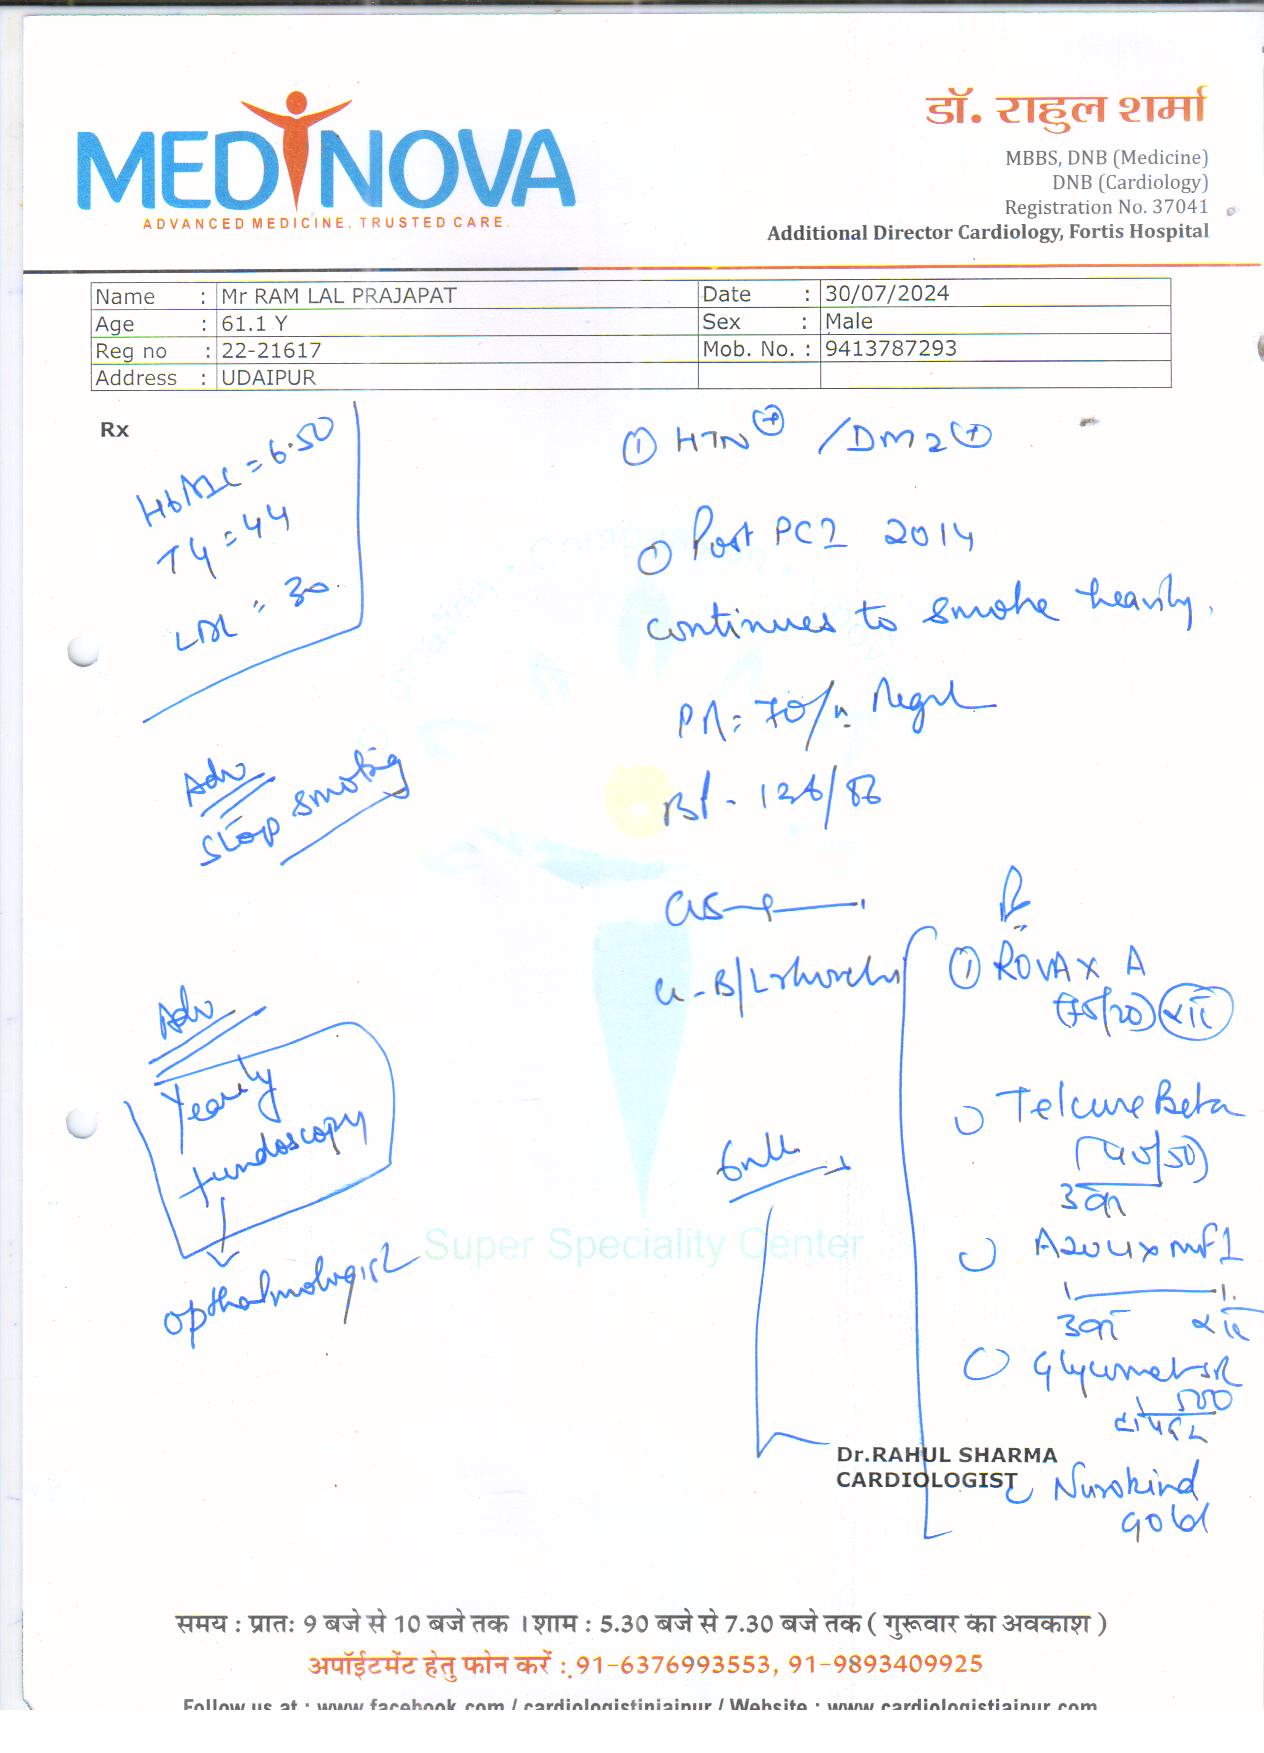 MEDINOVA
ADVANCED MEDICINE. TRUSTED CARE.
डॉ. राहुल शर्मा
MBBS, DNB (Medicine)
DNB (Cardiology)
Registration No. 37041
Additional Director Cardiology, Fortis Hospital
Name : Mr RAM LAL PRAJAPAT Date : 30/07/2024
Age : 61.1 Y Sex : Male
Reg no : 22-21617 Mob. No. : 9413787293
Address : UDAIPUR
Rx
HbA1C = 6.50
TG = 44
LDL = 30
Adv
Stop smoking
Adv
Yearly
fundoscopy
opthalmologist
① HTN ⊕ / DM2 ⊕
① Post PCI 2014
continues to smoke heavily.
PR = 70/m Regul
BP - 136/86
①ROVAX A
(75/20)
Telcure Beta
(40/50)
Glycomet SR
500
Nurokind
gold
Super Speciality Center
Dr.RAHUL SHARMA
CARDIOLOGIST
समय : प्रातः 9 बजे से 10 बजे तक । शाम : 5.30 बजे से 7.30 बजे तक ( गुरूवार का अवकाश )
अपॉईटमेंट हेतु फोन करें : 91-6376993553, 91-9893409925
Follow us at : www.facebook.com / cardiologistinjaipur / Website : www.cardiologistjaipur.com